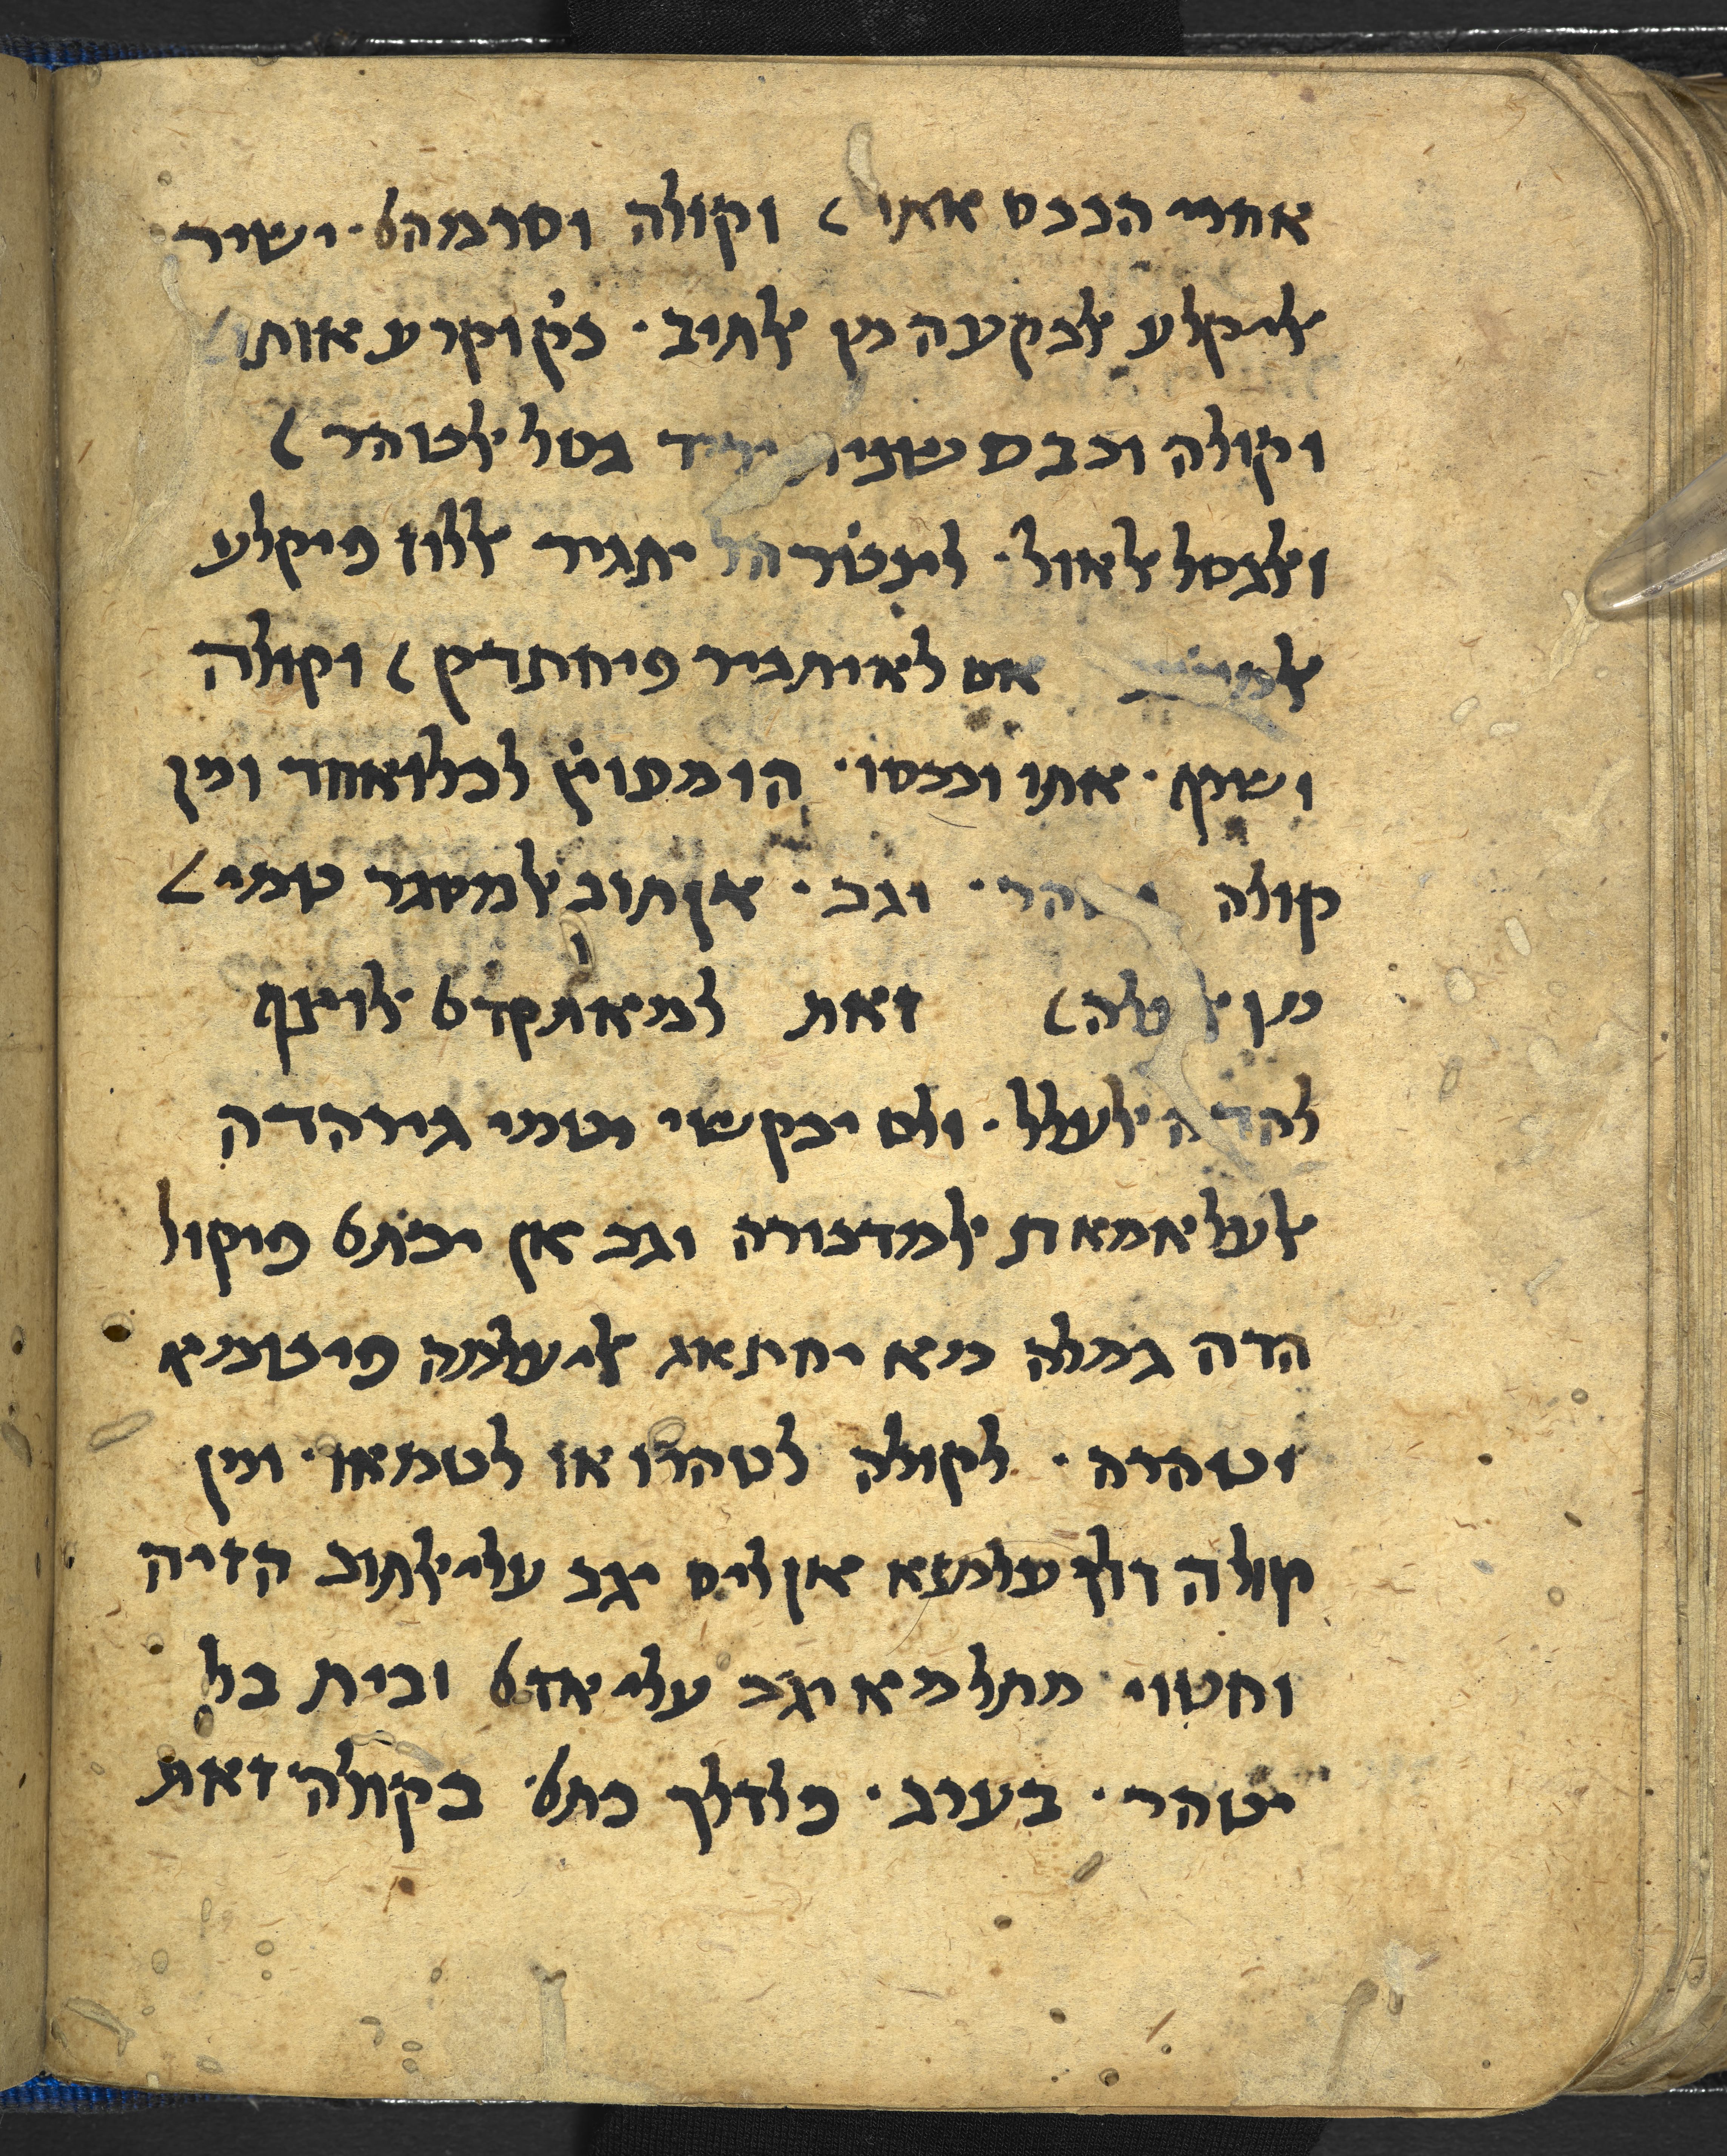 אחרי הככס אתו וקולה וסרמהם · ישיר
אלי קלע אלבקעה מן אלתוב · כק׳ וקרע אותו
וקולה וכבס שנית יריד גסל אלטהר
ואלגסל אלאול · לינט׳ר הל יתגיר אללון פיקלע
אם לא יתגיר פיחתרק וקולה
ושרף · אתו וככסו · הו מעוץ׳ לכל ואחד ומן
קולה וטהר · וגב · אן תוב אלמסגר טמי
מן אלעלה זאת למא תקדם אלוצף
להדה אלעלל · ולם יבק שי יטמי גיר הדה
אלעלאמאת אלמדכורה וגב אן יכ׳תם פיקול
הדה גמלה מא יחתאג אלי עלמה פי טמיא
וטהרה · לקולה לטהרו או לטמאו · ומן
קולה דלך עלמנא אן ליס יגב עלי אלתוב הזיה
וחטוי מתל מא יגב עלי אדם ובית בל
יטהר · בערב · פלדלך כ׳תם · בקולה זאת